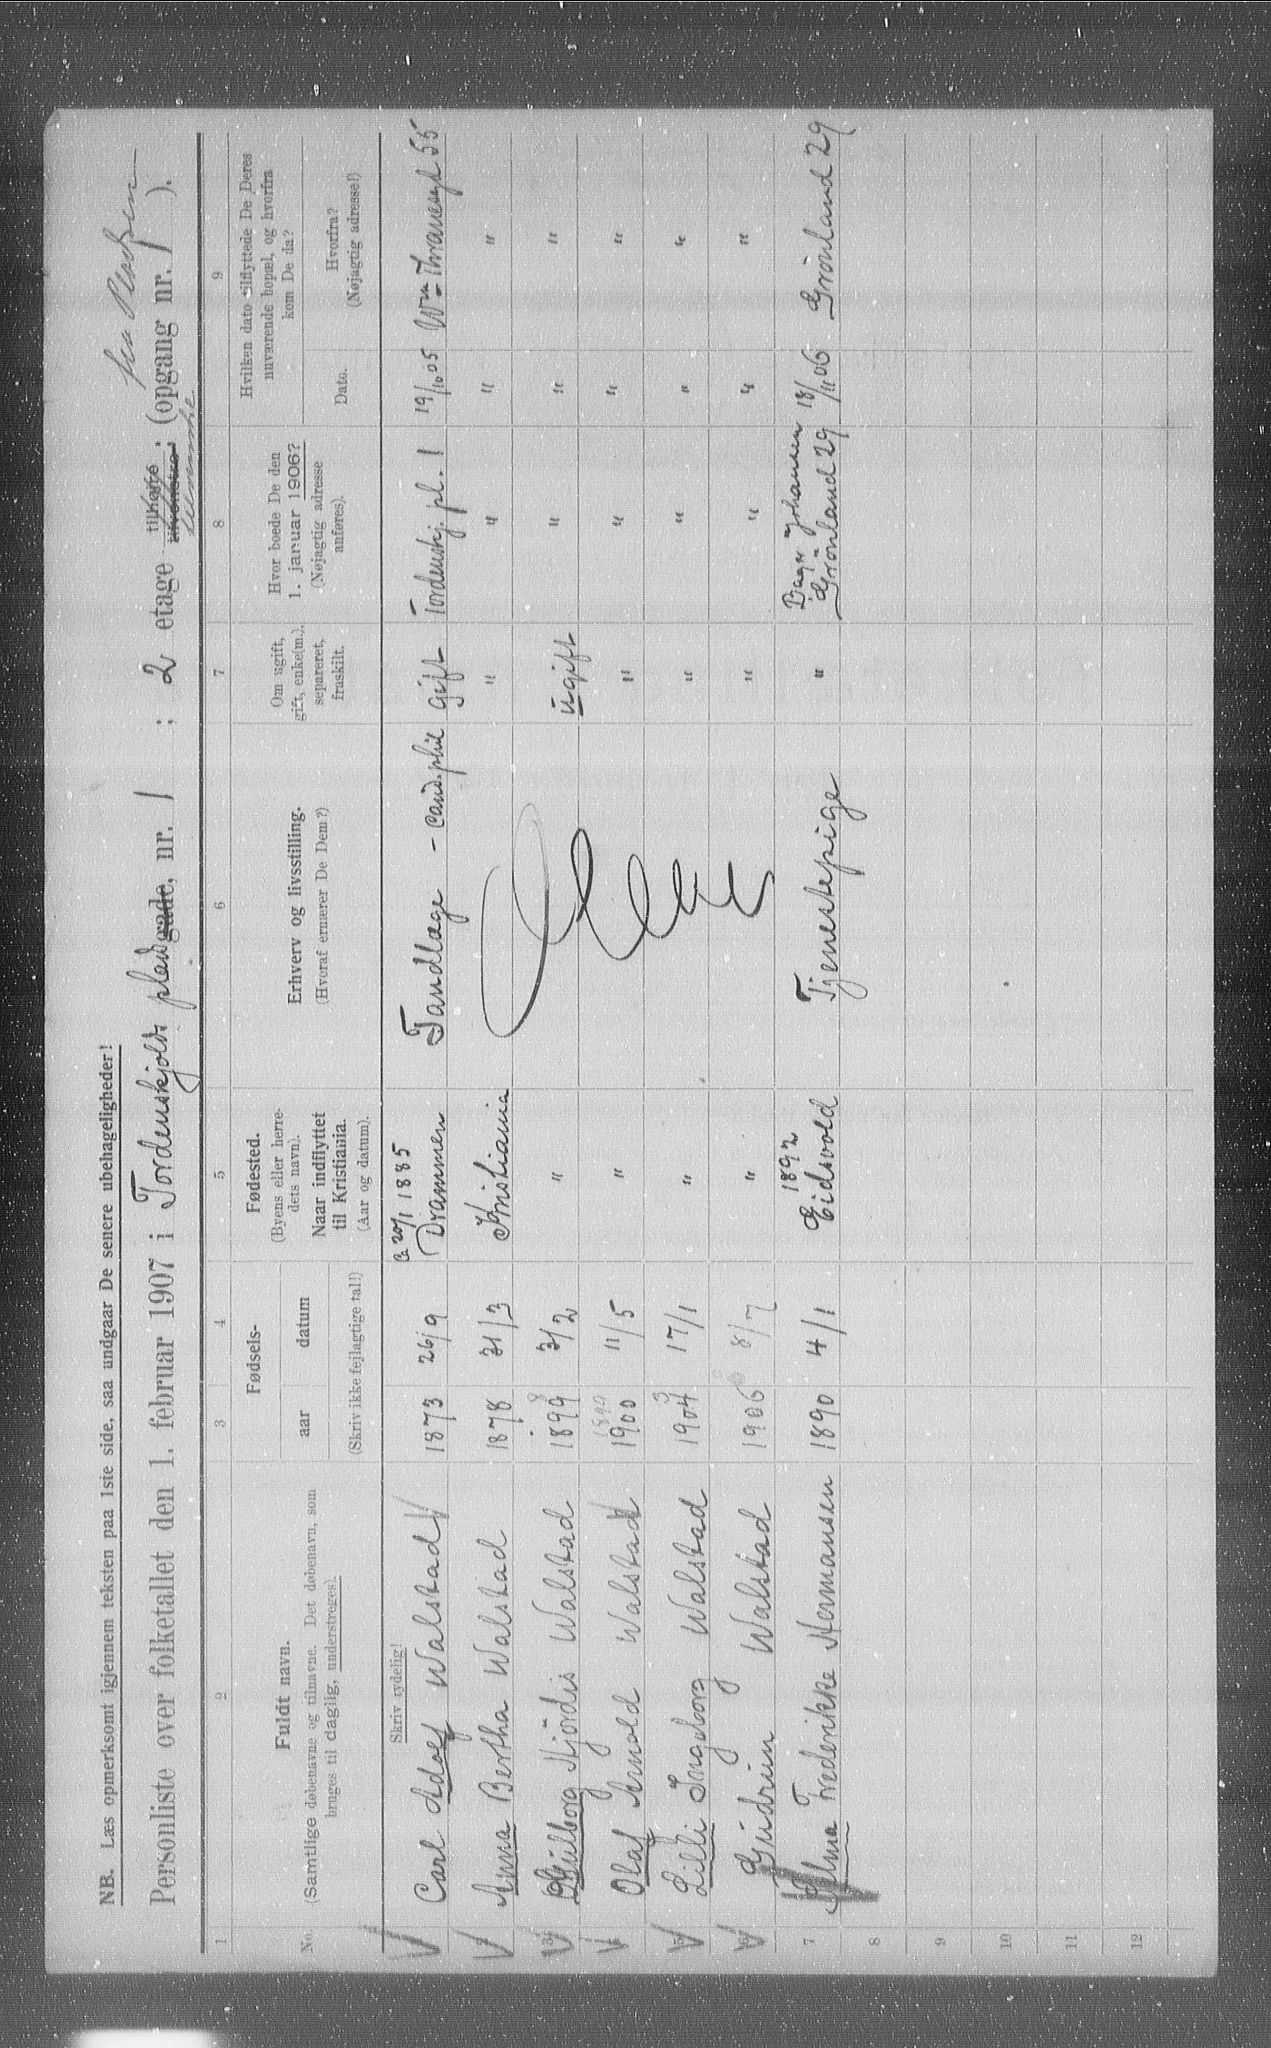 NB. Læs opmerksomt igjennem teksten paa 1ste side, saa undgaar De senere ubehageligheder!
Personliste over folketallet den 1. februar 1907 i Tordenskjolds plads gade, nr. 1 ; 2 etage tilhøire tilvenstre; (opgang nr. ).
1 2 3 4 5 6 7 8 9
No.
Fuldt navn.
(Samtlige døbenavne og tilnavne. Det døbenavn, som
bruges til daglig, understreges).
Fødsels-
aar datum
(Skriv ikke fejlagtige tal!)
Fødested.
(Byens eller herre-
dets navn).
Naar indflyttet
til Kristiania.
(Aar og datum).
Erhverv og livsstilling.
(Hvoraf ernærer De Dem?)
Om ugift,
gift, enke(m.),
separeret,
fraskilt.
Hvor boede De den
1. januar 1906?
(Nøjagtig adresse
anføres).
Hvilken dato tilflyttede De Deres
nuværende bopæl, og hvorfra
kom De da?
Dato.
Hvorfra?
(Nøjagtig adresse!)
Skriv tydelig!
Carl Adolf Walstad 1873 26/9 20/1 1885 Drammen Tandlæge - cand. phil gift Tordenskj. pl. 1 19/10 05 Wm Thranesgd 55
2 Anna Bertha Walstad 1878 31/3 Kristiania " " " "
3 Gulborg Hjördis Walstad 1899 3/2 " ugift " " "
Olaf Arnold Walstad 1899 1900 11/5 " " " " "
5 Lilli Ingeborg Walstad 1904 3 17/1 " " " " "
Gudrun Walstad 1906 8/7 " " " " "
7 Alma Frederikke Hermansen 1890 4/1 1892 Eidsvold Tjenestepige " Bager Johansen Grönland 29 18/11 06 Grönland 29
8
9
10
11
12